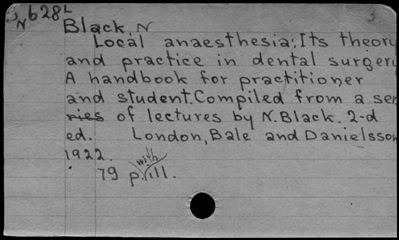 3,628L
N
3
Black, N
Local anaesthesia: Its theory
and practice in dental surgery
A handbook for practitioner
and student. Compiled from a ser
ries of lectures by N. Black. 2-d
ed. London, Bale and Danielsson
1922.
79 p. with ill.